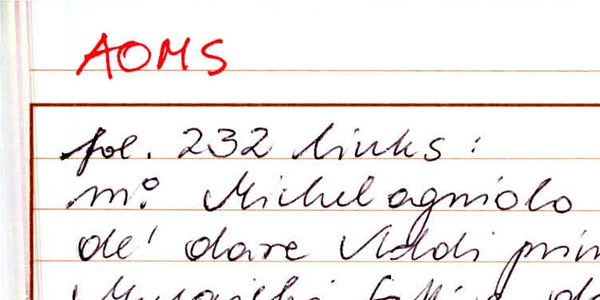 AOMS
fol. 232 links:
m.º Michelagniolo
de' dare Addi prim